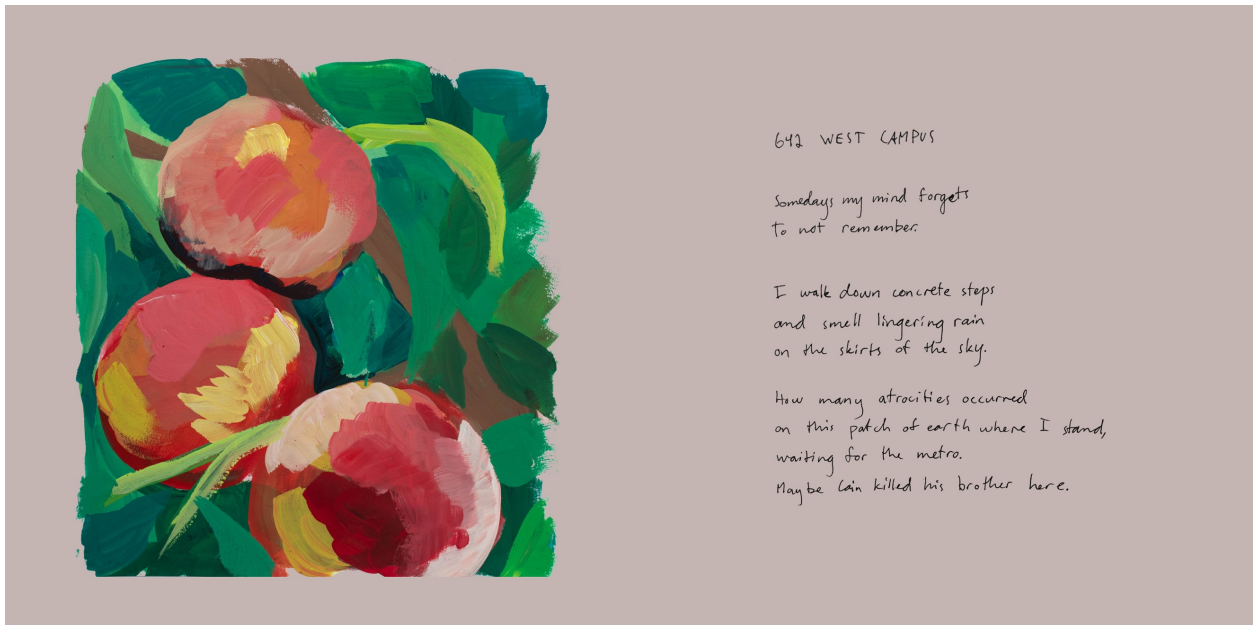 642 WEST CAMPUS
Somedays my mind forgets
to not remember.
I walk down concrete steps
and smell lingering rain
on the skirts of the sky.
How many atrocities occurred
on this patch of earth where I stand,
waiting for the metro.
Maybe Cain killed his brother here.